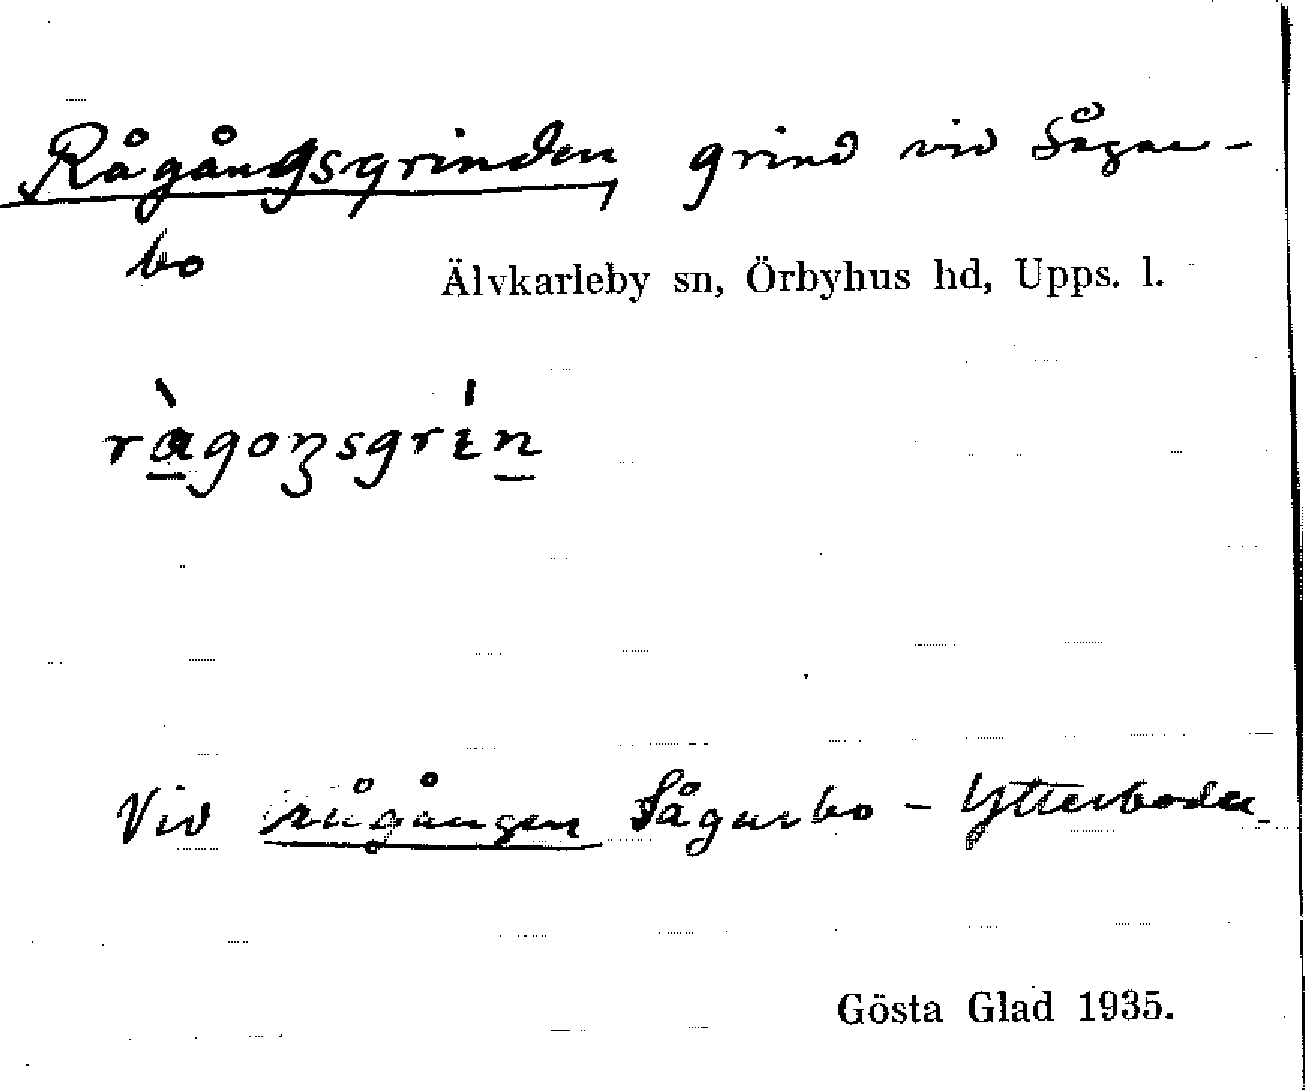 Rågångsgrinden, grind vid Sågar-
bo
Älvkarleby sn, Örbyhus hd, Upps. l.
ràgoŋsgrín
Vid rågången Sågarbo - Ytterboda
Gösta Glad 1935.